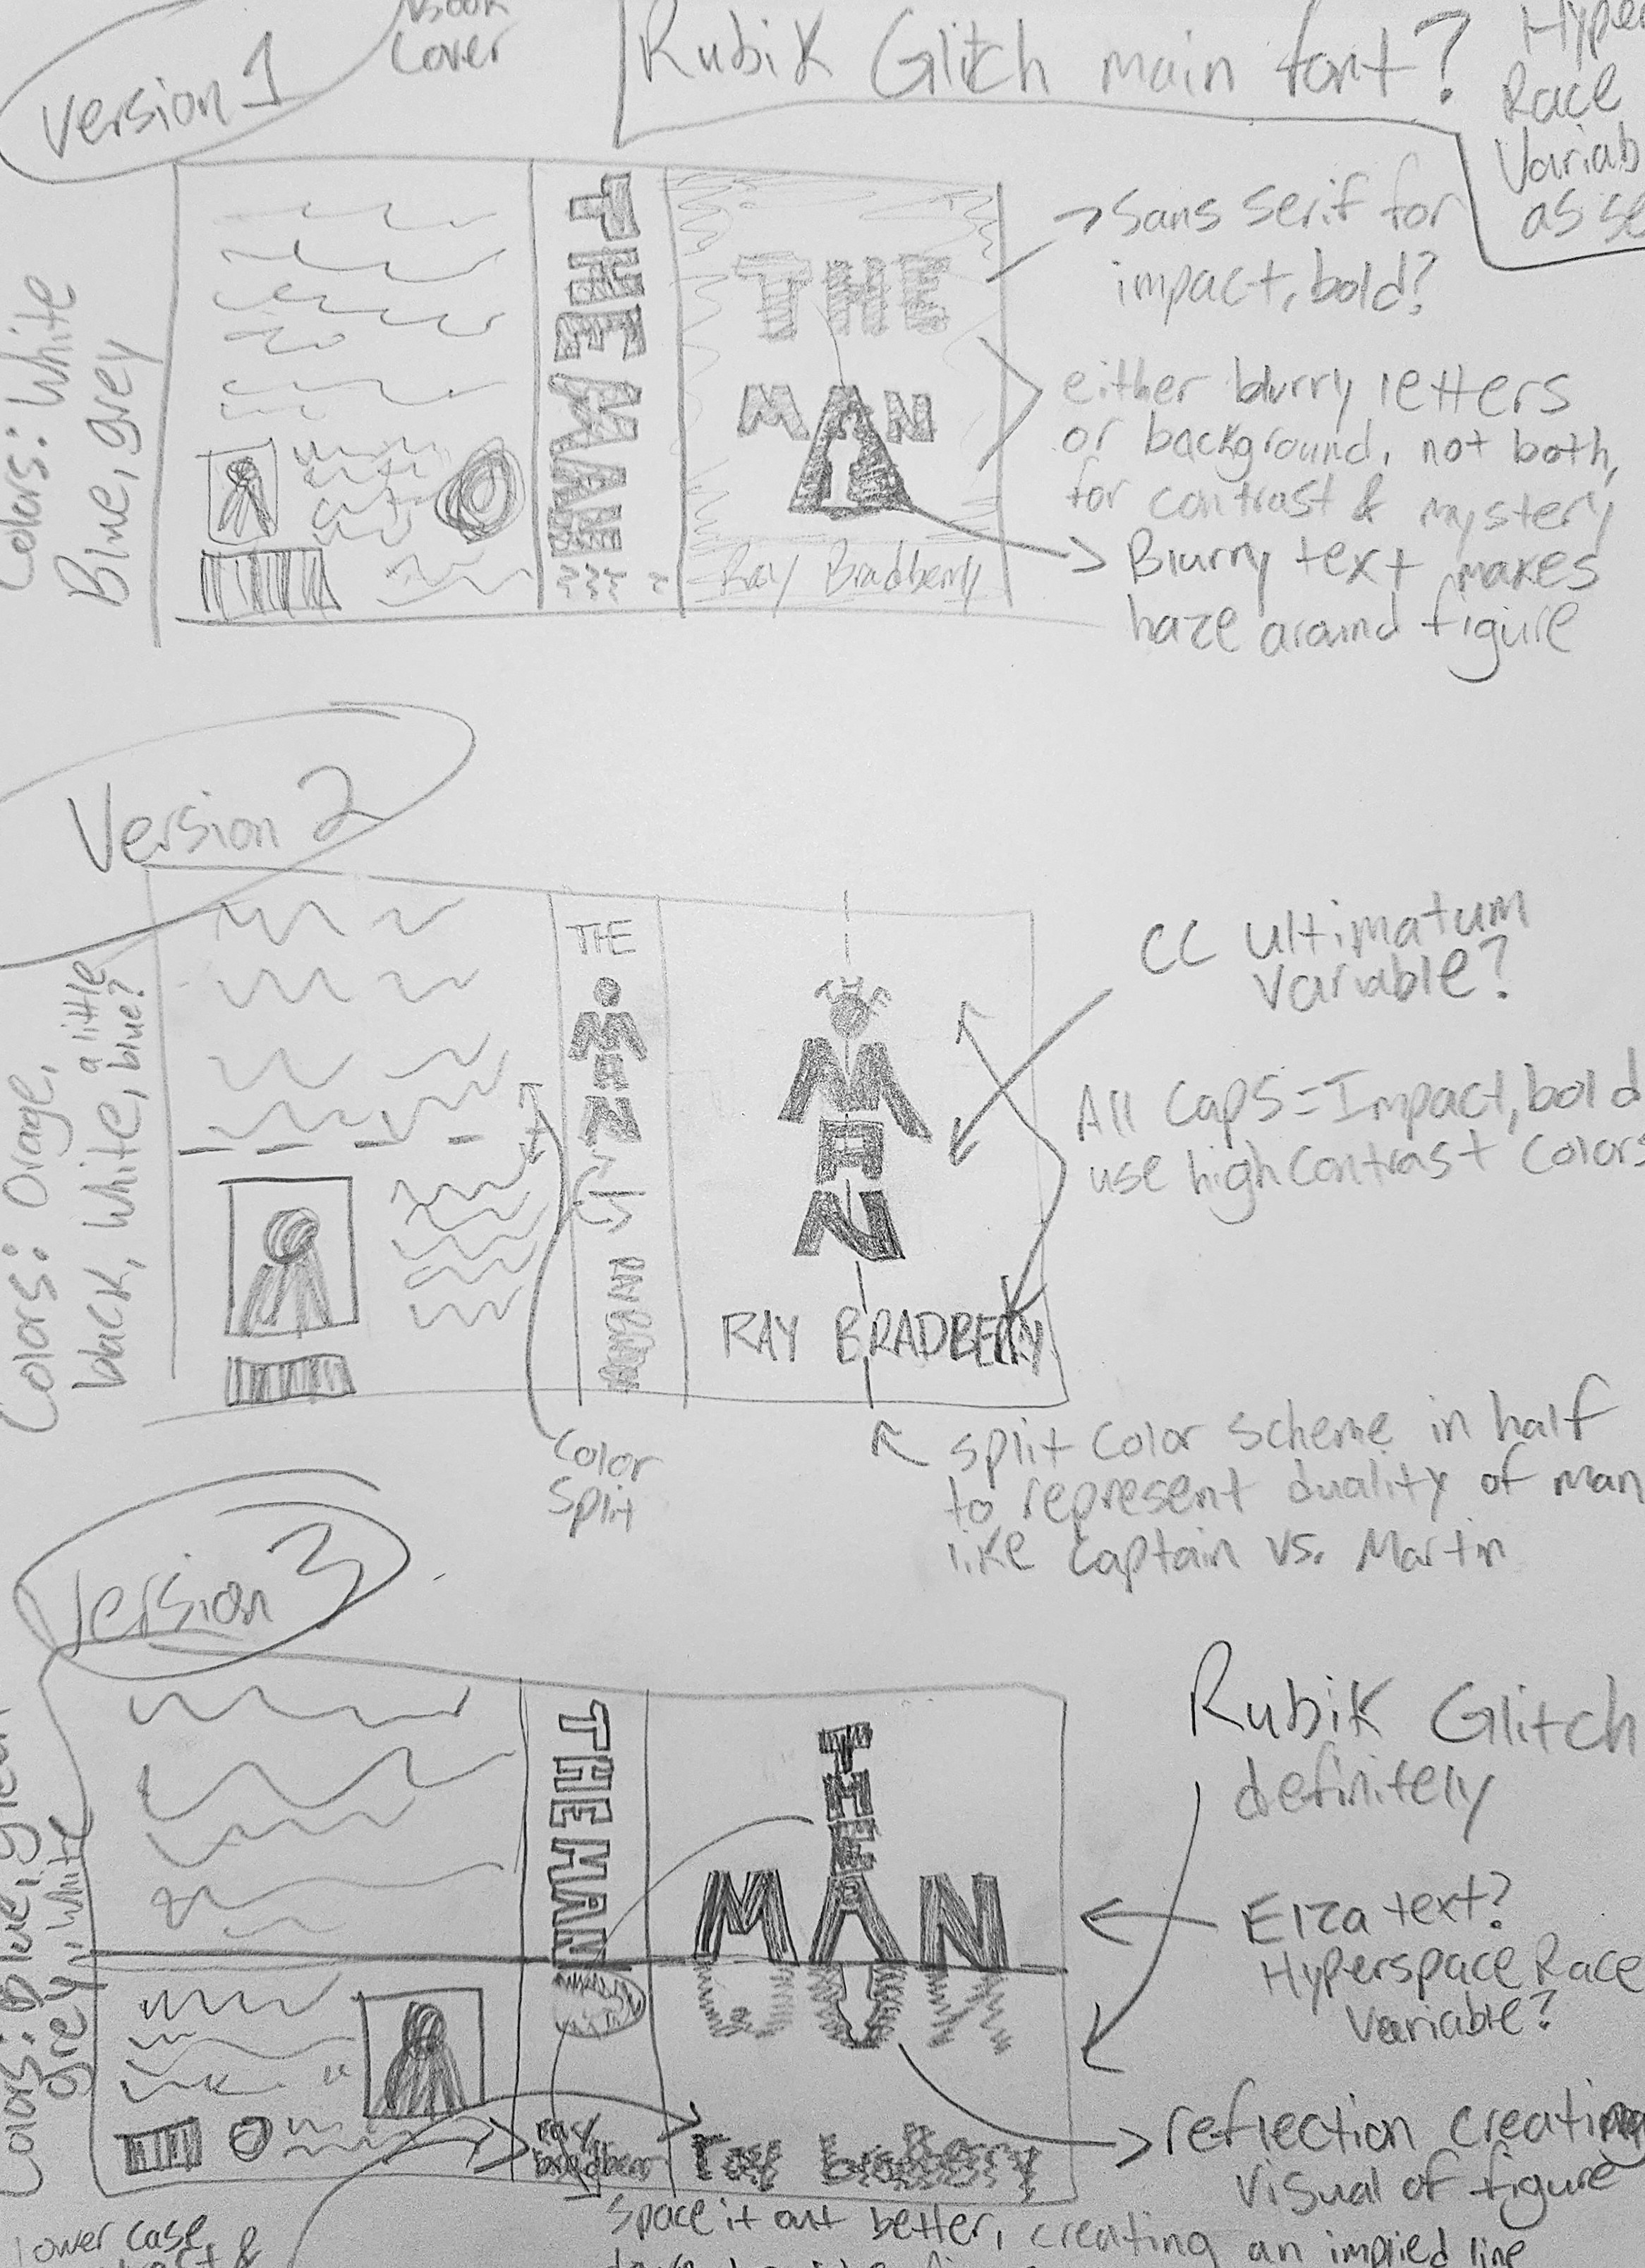 Version 1
Book
Cover
Rubik Glitch main font?
Hyper
Race
Variab
as se
Colors: White
Blue, grey
THE MAN
THE
MAN
Ray Bradberry
Sans serif for
impact, bold?
either blurry letters
or background, not both,
for contrast & mystery
Blurry text makes
haze around figure
Version 2
Colors: Orage,
black, white, a little
blue?
THE
MAN
RAY
MAN
RAY BRADBERRY
CC Ultimatum
Variable?
All Caps = Impact, bold
use high contrast colors
Color
Split
split color scheme in half
to represent duality of man
like Captain vs. Martin
Version 3
Colors: Blue, green
grey, white
THE MAN
THE
MAN
ray
ray
Rubik Glitch
definitely
Elza text?
Hyperspace Race
Variable?
reflection creating
visual of figure
lower case
&
space it out better, creating an implied line